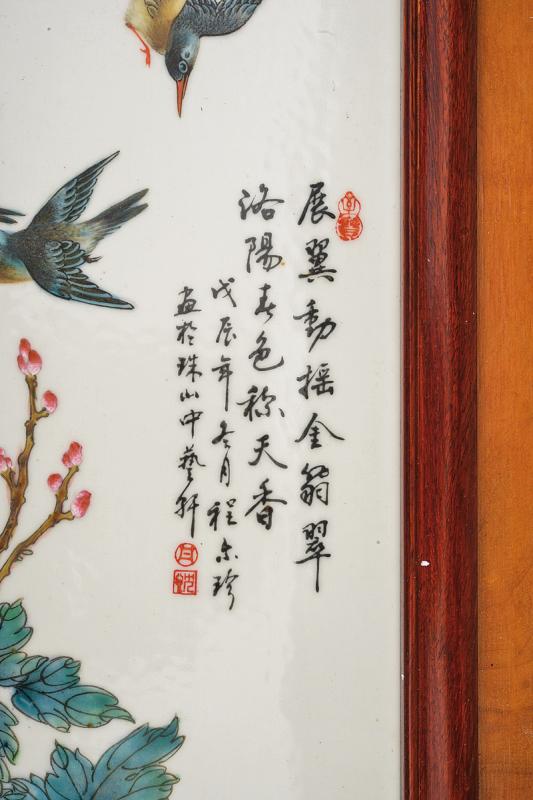 展翼動摇金翁翠
洛陽春色称天香
戊辰年冬月程尔珍
画於珠山中藝轩